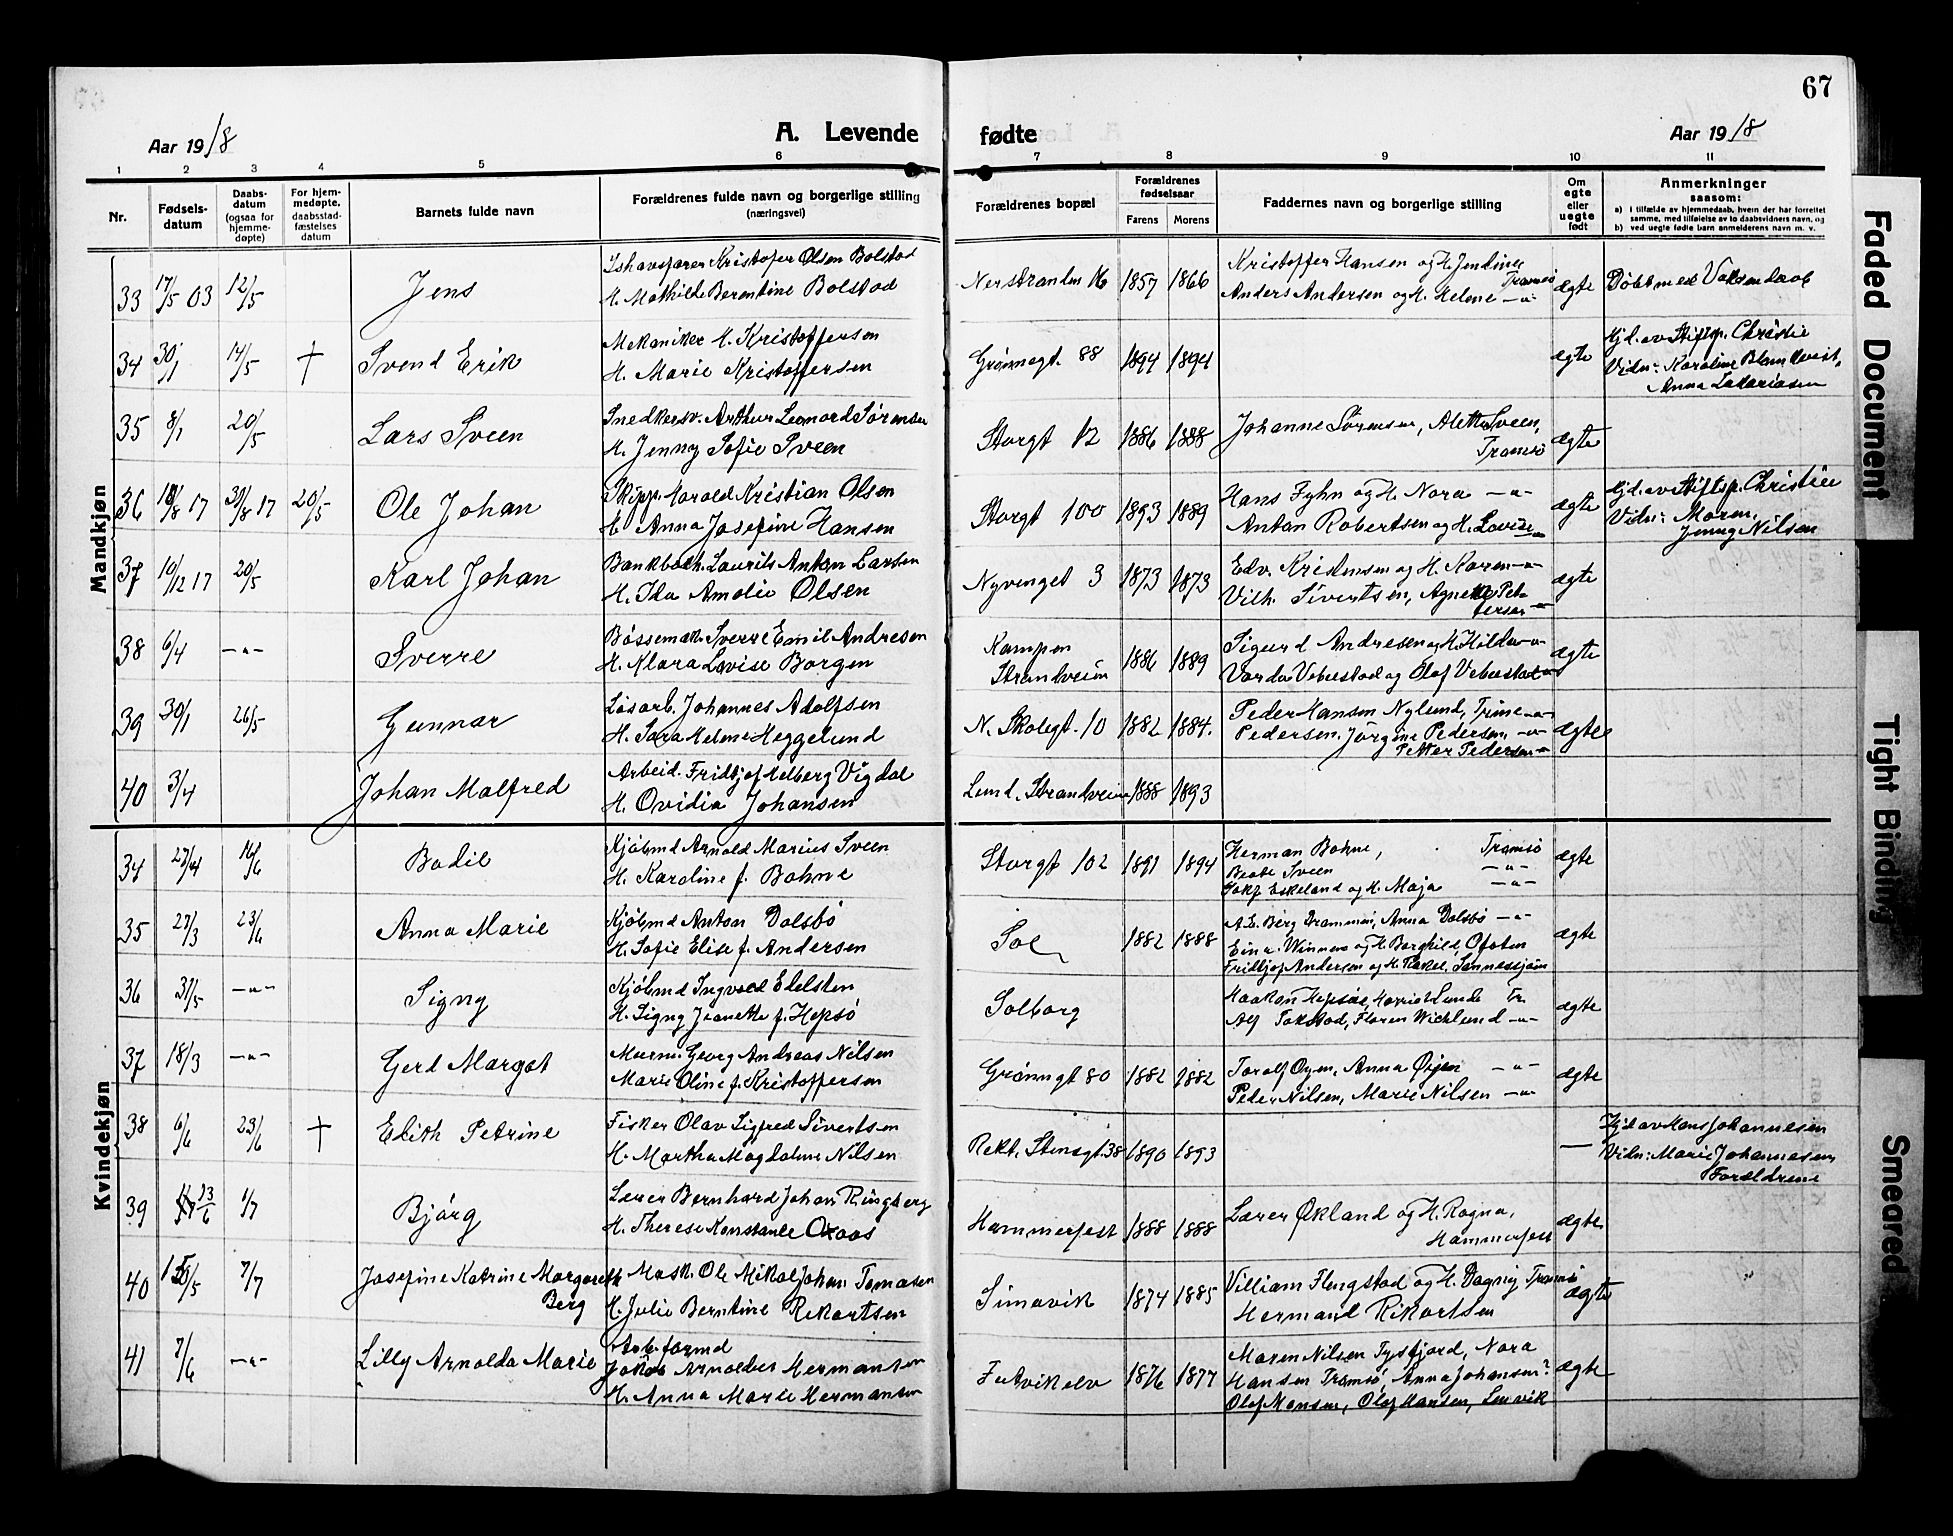 67
Aar 1918
A. Levende
fødte
Aar 1918
1 2 3 4 5 6 7 8 9 10 11
Nr.
Fødsels-
datum
Daabs-
datum
(ogsaa for
hjemme-
døpte)
For hjem-
medøpte,
daabsstad-
fæstelses
datum
Barnets fulde navn
Forældrenes fulde navn og borgerlige stilling
(næringsvei)
Forældrenes bopæl
Forældrenes
fødselsaar
Farens Morens
Faddernes navn og borgerlige stilling
Om
egte
eller
uegte
født
Anmerkninger
saasom:
a) i tilfælde av hjemmedaab, hvem der har forrettet
samme, med tilføielse av to daabsvidners navn, og
b) ved uegte fødte barn anmelderens navn m. v.
Mandkjøn
33 17/5 03 12/5 Jens
Ishavsfarer Kristofer Olsen Bolstad
H. Mathilde Berentine Bolstad
Nerstranden 16 1857 1866
Kristoffer Hansen og H. Jentine
Tromsø
Anders Andersen og H. Helene -"-
ægte
Døbt med Voksendaab
34 30/1 14/5 † Svend Erik
Mekaniker H. Kristoffersen
H. Marie Kristoffersen
Grønnegt. 88 1894 1894 ægte
Hjd. av Stiftsp. Christie
Vidn: Karoline Blomkvist,
Anna Zakariasen
35 8/1 20/5 Lars Sveen
Snedkersv. Arthur Leonard Sørensen
H. Jenny Sofie Sveen
Storgt 12 1886 1888
Johanne Sørensen, Alette Sveen,
Tromsø
ægte
36 18/8 17 30/8 17 20/5 Ole Johan
Skipp. Harold Kristian Olsen
H. Anna Josefine Hansen
Storgt 100 1893 1889
Hans Fyhn og H. Nora -"-
Antan Robertsen og H. Lovise -"-
ægte
Hjd. av Stiftsp. Christie
Vidn: Moren,
Jenny Nilsen
37 10/12 17 20/5 Karl Johan
Bankbok. Laurits Antan Larsen
H. Ida Amalie Olsen
Nyvenget 3 1873 1873
Edv. Kristensen og H. Karen -"-
Vilh. Sivertsen, Agnethe Pet-
tersen -"-
ægte
38 6/4 -"- Sverre
Bøssemak. Sverre Emil Andresen
H. Klara Lovise Borgen
Kampen
Strandveien
1886 1889
Sigurd Andresen og H. Hilda -"-
Varda Vebustad og Olaf Vebustad -"-
ægte
39 30/1 26/5 Gunnar
Løsarb. Johannes Adolfsen
H. Sara Helene Heggelund
N. Skolegt. 10 1882 1884.
Peder Hansen Nylund, Trine -"-
Pedersen. Jørgine Pedersen, -"-
Petter Pedersen -"-
ægte
40 3/4 Johan Malfred
Arbeid. Fridtjof Helberg Vigdal
H. Ovidia Johansen
Lund. Strandveien 1888 1893
Kvindekjøn
34 27/4 16/6 Bodil
Kjøbmd Arnold Marius Sveen
H. Karoline f. Bohne
Storgt 102 1891 1894
Herman Bohne, Tromsø
Beate Sveen -"-
Eskeland og H. Maja -"-
ægte
35 27/3 23/6 Anna Marie
Kjøbmd Anton Dalsbø
H. Sofie Elise f. Andersen
1882 1888
A. L. Berg Drammen, Anna Dalsbø -"-
Einar Winnem og H. Borghild, Ofoten
Fridtjof Andersen og H. Rakel, Sannessjøin
ægte
36 31/5 -"- Signy
Kjøbmd Ingvald Edelsten
H. Signy Jeanette f. Hepsø
Solborg
Haakon Hepsøe, Harriet Lunde Tr.
Alf Takstad, Floren Wichlund -"-
ægte
37 18/3 -"- Gerd Margot
Murm. Georg Andreas Nilsen
Marie Oline f. Kristoffersen
Grønnegt 80 1882 1882
Toralf Oyen, Anna Øyen -"-
Peder Nilsen, Marie Nilsen -"-
ægte
38 6/6 23/6 † Edith Petrine
Fisker Olav Sigfred Sivertsen
H. Martha Magdalene Nilsen
Rekt. Stensgt. 38 1890 1893 —
Hjd av Hans Johannesen
Vidn: Marie Johannesen,
Forældrene
39 23/6 1/7 Bjørg
Lærer Bernhard Johan Ringberg
H. Therese Konstanse Oxaas
Hammerfest 1888 1888
Lærer Økland og H. Ragna,
Hammerfest
ægte
40 7/7 Josefine Katrine Margareth
Berg
Mask. Ole Mikal Johan Tomasen
H. Julie Berntine Rikartsen
Simavik 1874 1885
Villiam Flengstad og H. Dagny Tromsø
Hermand Rikartsen
ægte
41 7/6 -"- Lilly Arnolda Marie
Arb. formd
Jakob Arnoldus Hermansen
H. Anna Marie Hermansen
Futvikelv 1876 1877
Maren Nilsen Tysfjord, Nora
Hansen Tromsø, Anna Johansen?
Olaf Hansen, Olaf Hansen, Lenvik
ægte
Faded Document
Tight Binding
Smeared